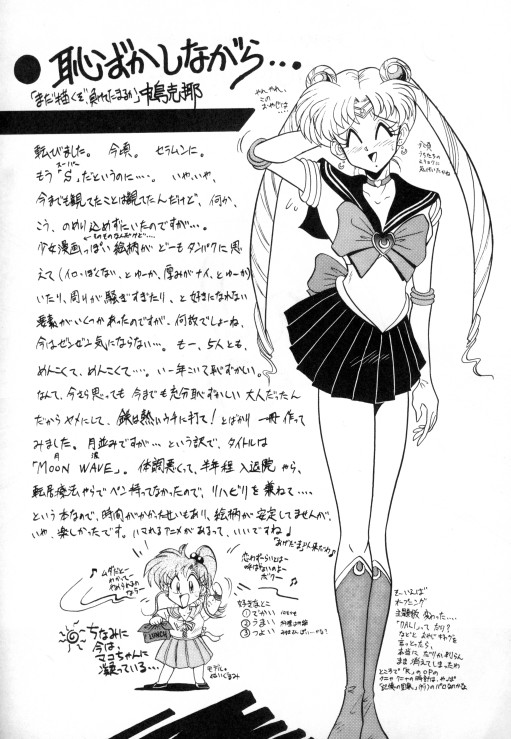 ●恥ずかしながら...
「まだ描くぞ、負けてたまるか」中島克耶
転びました。今頃。セラムンに。
もう"S"だというのに…。いやいや、
スーパー
今までも観てたことは観てたんだけど、何か、
こう、のめり込めずにいたのですが…。
少女漫画っぽい絵柄がどーもタンパクに思
えて(イロっぽくない、とゆーか、厚みがナイ、とゆーか)
いたり、周りが騒ぎすぎたり、と好きになれない
要素がいくつかあったのですが、何故でしょーね、
今はゼンゼン気にならない…。もー、5人とも、
めんこくて、めんこくて…。いー年こいて恥ずかしい。
なんて、今さら思っても今までも充分恥ずかしい大人だったん
だからヤメにして、鉄は熱いウチに打て!とばかり一冊作って
みました。月並みですが…という訳で、タイトルは
月 波
「MOON WAVE」。体調悪くて、半年程入退院やら、
転居療法やらでペン持ってなかったので、リハビリを兼ねて…
という本なので、時間がかかったせいもあり、絵柄が安定してませんが、
いや、楽しかったです。ハマれるアニメがあるって、いいですね♪
やれやれ、
この
おやじは…
ムダだとー
わかって
やめられるの
なら♪
恋わずらいとは
呼ばないのよー
ボクー
好きなとこ
① でかい
② うまい
③ つよい
LUNCH
ちなみに
今は、
マコちゃんに
凝っている…
モデル。
ぬいぐるみ
そーいえば
オープニング
主題歌 変わった…
「DALI」って ダリ?
などと おやじギャグを
言っとったら、
まま 消えてしまった
ところで「R」のOPの